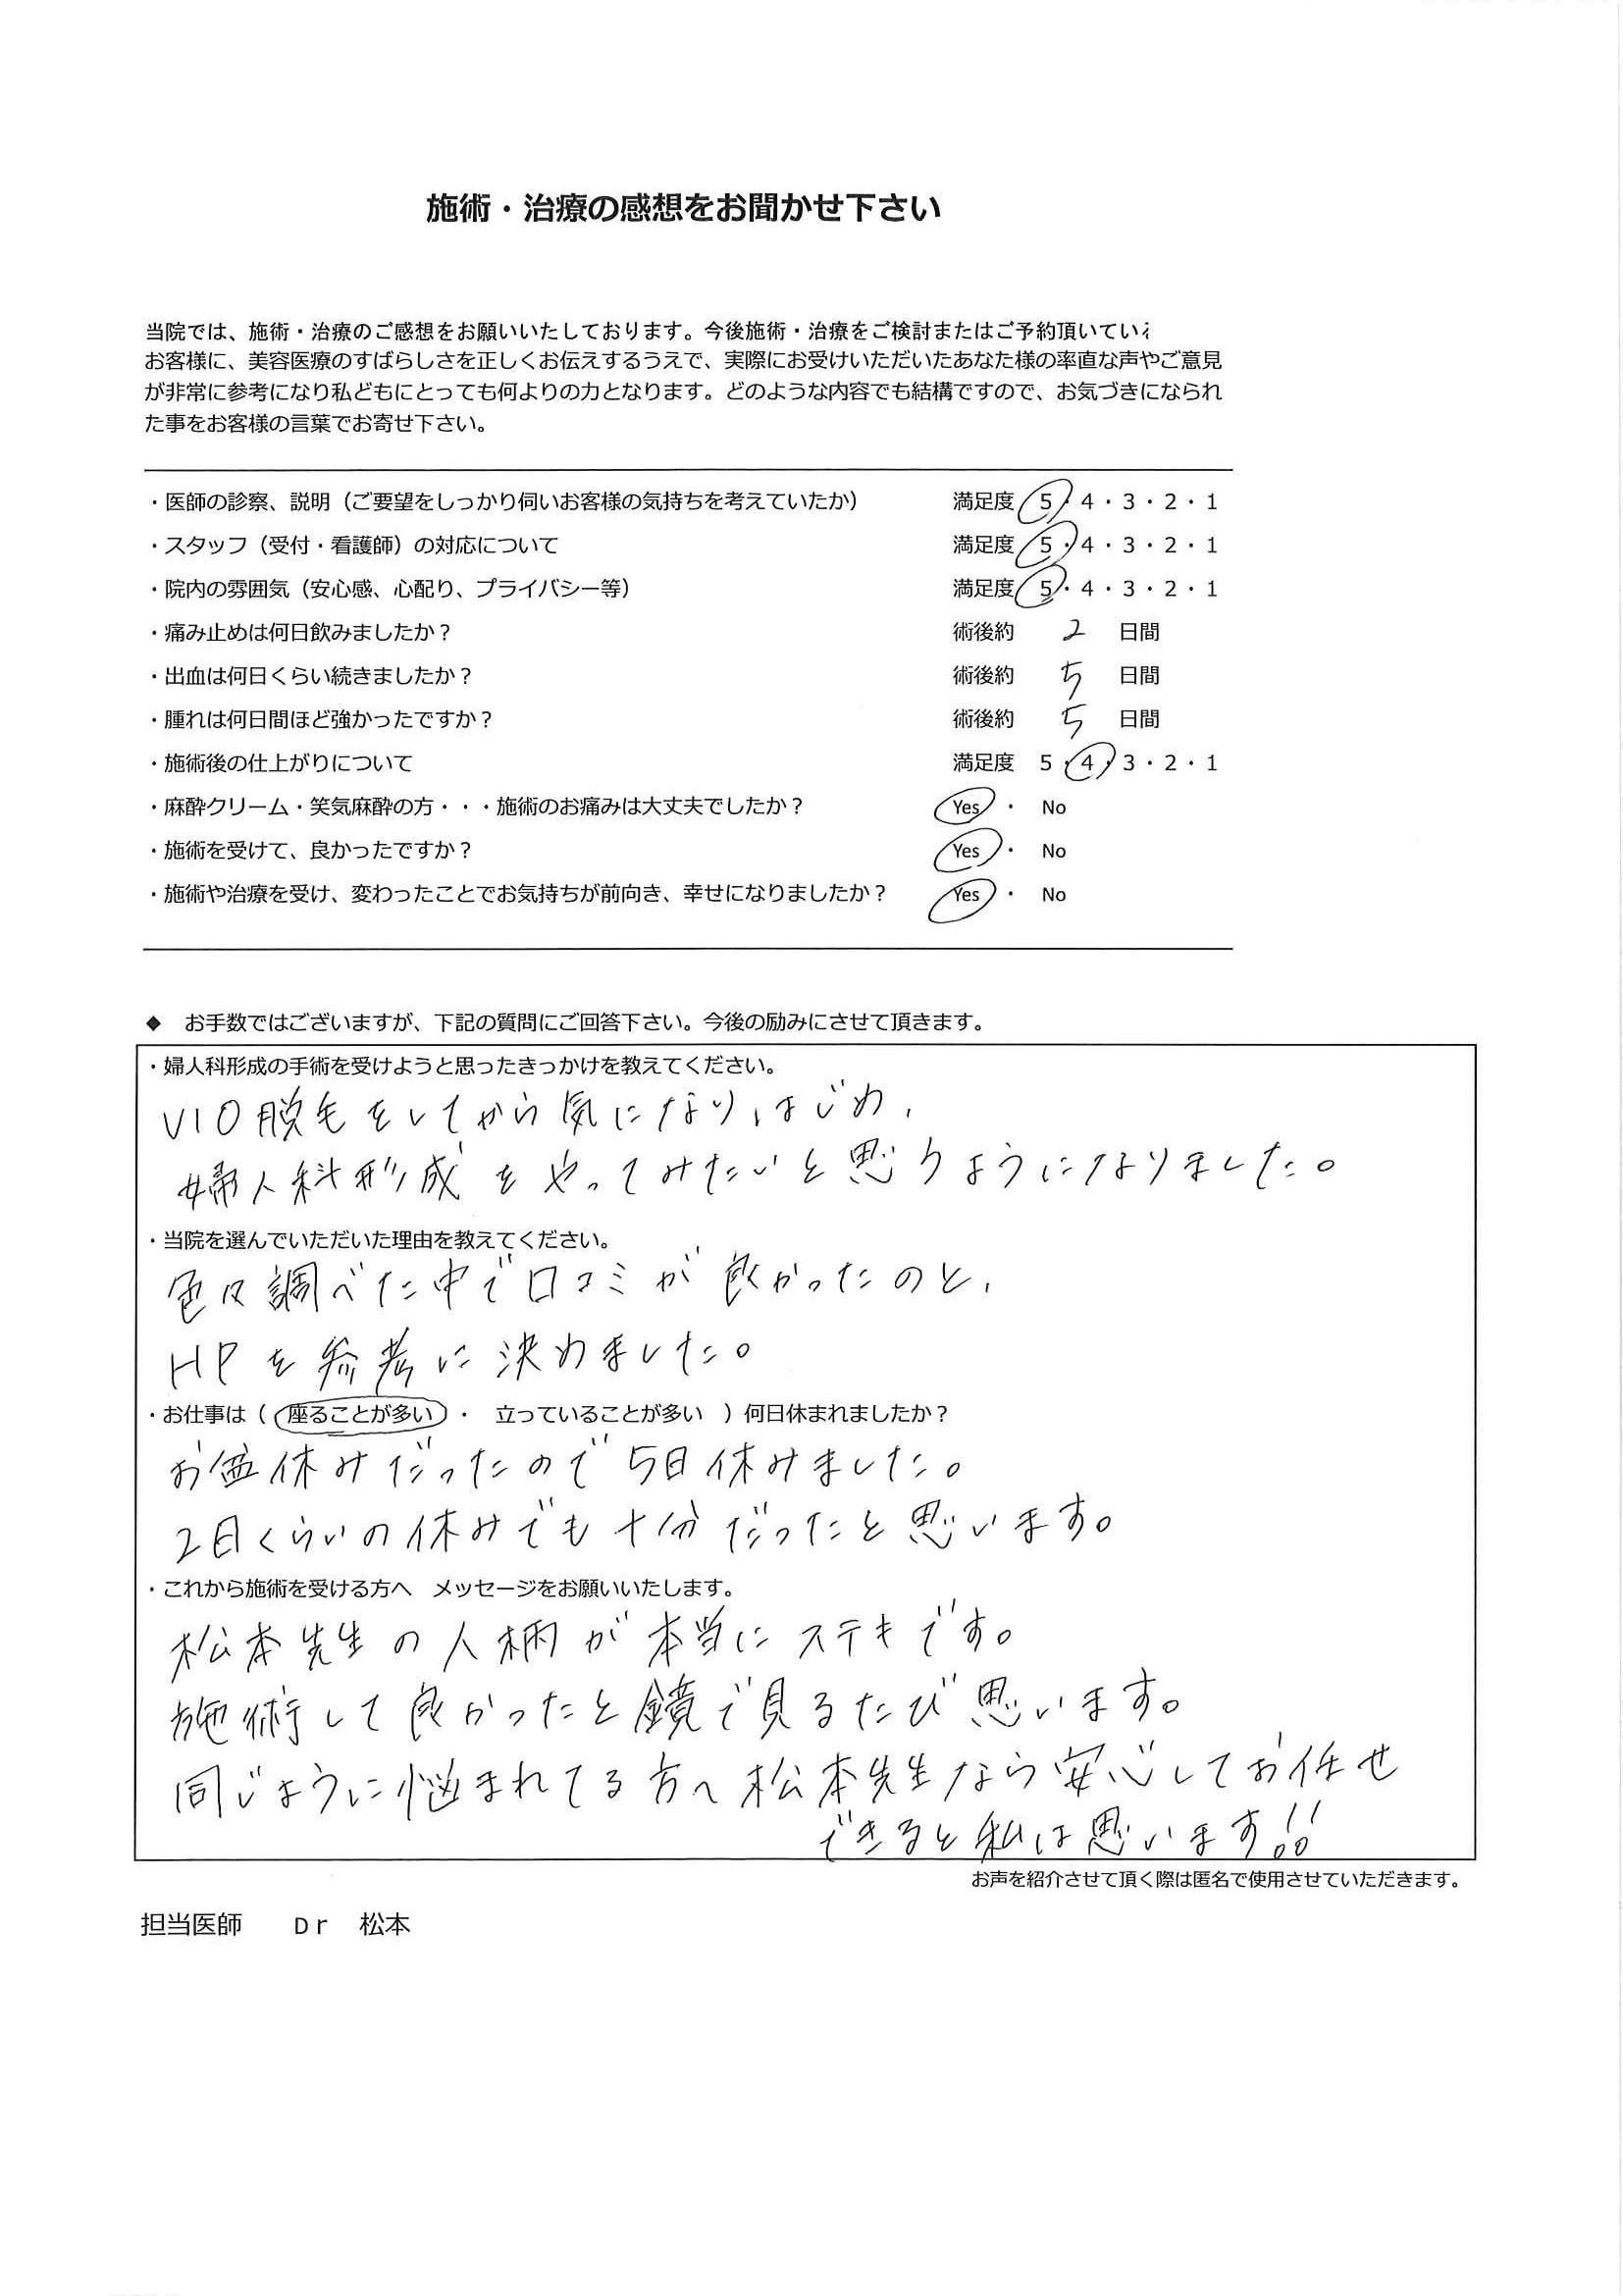 施術・治療の感想をお聞かせ下さい
当院では、施術・治療のご感想をお願いいたしております。今後施術・治療をご検討またはご予約頂いている
お客様に、美容医療のすばらしさを正しくお伝えするうえで、実際にお受けいただいたあなた様の率直な声やご意見
が非常に参考になり私どもにとっても何よりの力となります。どのような内容でも結構ですので、お気づきになられ
た事をお客様の言葉でお寄せ下さい。
・医師の診察、説明（ご要望をしっかり伺いお客様の気持ちを考えていたか） 満足度 5・4・3・2・1
・スタッフ（受付・看護師）の対応について 満足度 5・4・3・2・1
・院内の雰囲気（安心感、心配り、プライバシー等） 満足度 5・4・3・2・1
・痛み止めは何日飲みましたか？ 術後約 2 日間
・出血は何日くらい続きましたか？ 術後約 5 日間
・腫れは何日間ほど強かったですか？ 術後約 5 日間
・施術後の仕上がりについて 満足度 5・4・3・2・1
・麻酔クリーム・笑気麻酔の方・・・施術のお痛みは大丈夫でしたか？ Yes ・ No
・施術を受けて、良かったですか？ Yes ・ No
・施術や治療を受け、変わったことでお気持ちが前向き、幸せになりましたか？ Yes ・ No
◆ お手数ではございますが、下記の質問にご回答下さい。今後の励みにさせて頂きます。
・婦人科形成の手術を受けようと思ったきっかけを教えてください。
VIO脱毛をしてから気になり、はじめ、
婦人科形成をやってみたいと思うようになりました。
・当院を選んでいただいた理由を教えてください。
色々調べた中で口コミが良かったのと、
HPを参考に決めました。
・お仕事は（ 座ることが多い ・ 立っていることが多い ）何日休まれましたか？
お盆休みだったので5日休みました。
2日くらいの休みでも十分だったと思います。
・これから施術を受ける方へ メッセージをお願いいたします。
松本先生の人柄が本当にステキです。
施術して良かったと鏡で見るたび思います。
同じように悩まれてる方へ松本先生なら安心してお任せ
できると私は思います!!
お声を紹介させて頂く際は匿名で使用させていただきます。
担当医師 Dr 松本